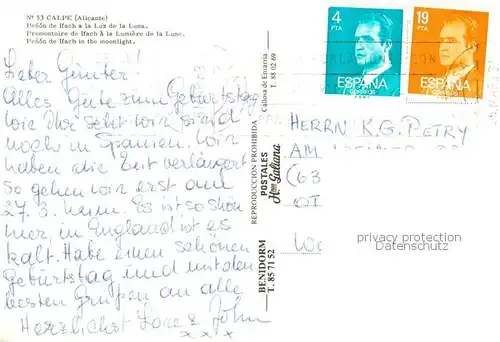 Nº 53 CALPE (Alicante)
Peñón de Ifach a la Luz de la Luna.
Promontoire de Ifach à la Lumière de la Lune.
Peñón de Ifach in the moonlight.
Lieber Günter!
Alles Gute zum Geburtstag
wie Ihr seht wir sind
noch in Spanien. Wir
haben die Zeit verlängert
so gehen wir erst am
27. 3. heim. Es ist so schön
hier, in England ist es
kalt. Habe einen schönen
Geburtstag und mit den
besten Grüßen an alle
Herzlichst Lore & John
x x x
BENIDORM
T. 85 71 52
REPRODUCCION PROHIBIDA
POSTALES
Hnos Galiana
Callosa de Ensarriá
T. 88 02 69
4
PTA
ESPAÑA
CORREOS
19
PTA
ESPAÑA
HERRN K.G. PETRY
AM
(63
privacy protection
Datenschutz